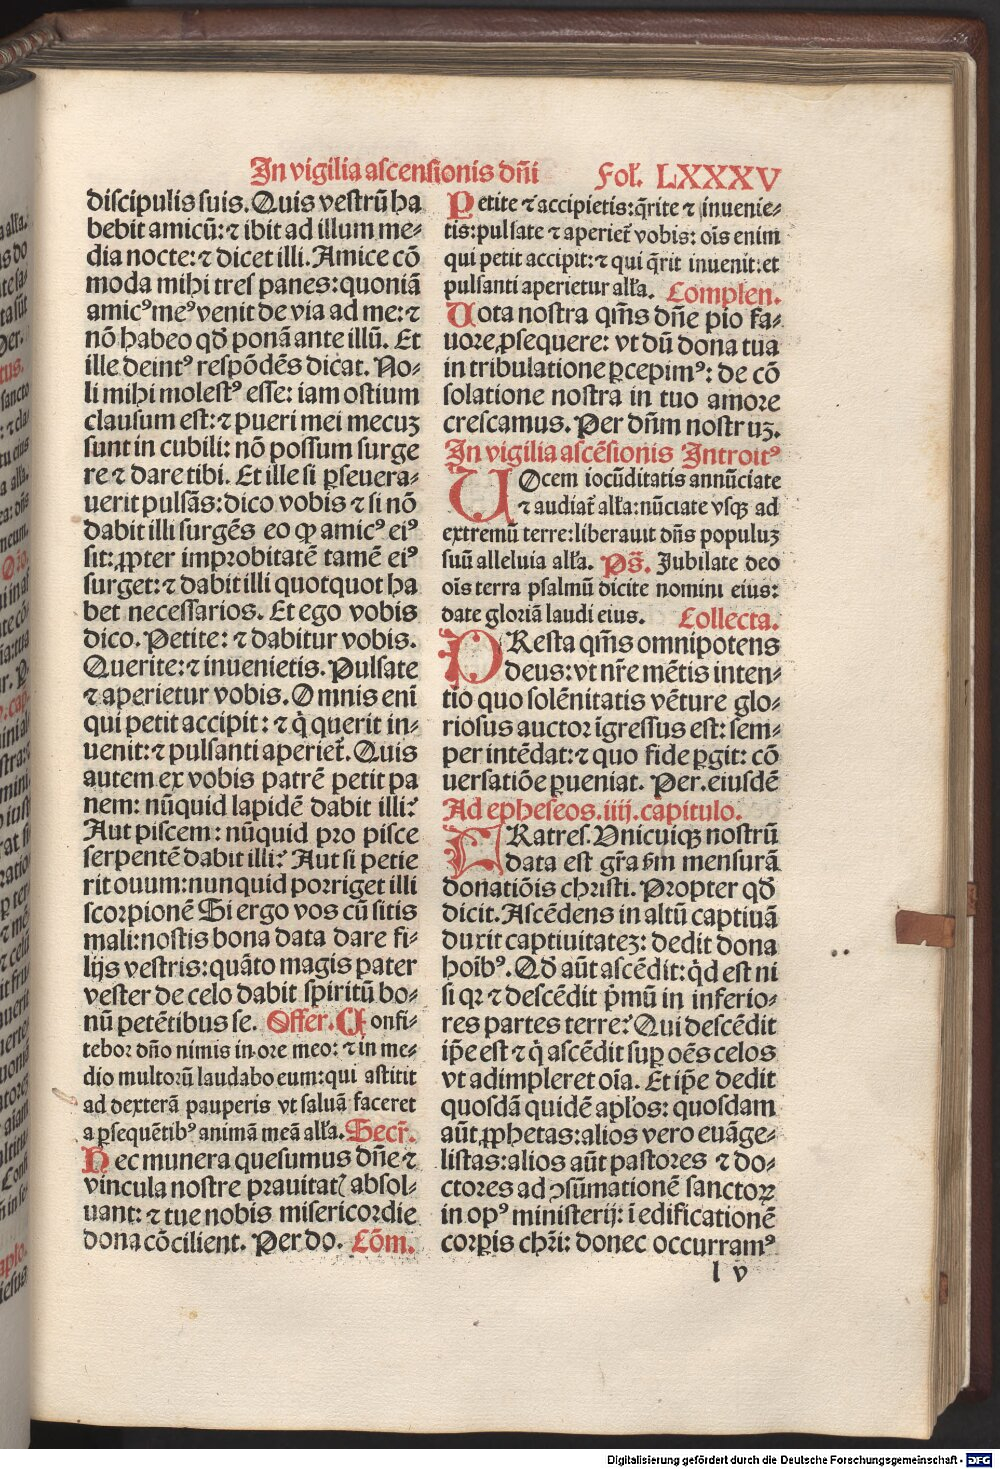 In vigilia ascensionis dñi Fol̃. LXXXV
discipulis suis. Quis vestrũ ha
bebit amicũ: ⁊ ibit ad illum me⸗
dia nocte: ⁊ dicet illi. Amice cõ
moda mihi tres panes: quoniã
amicꝰ meꝰ venit de via ad me: ⁊
nõ habeo qd̃ ponã ante illũ. Et
ille deintꝰ respõdẽs dicat. No⸗
li mihi molestꝰ esse: iam ostium
clausum est: ⁊ pueri mei mecuꝫ
sunt in cubili: nõ possum surge
re ⁊ dare tibi. Et ille si ꝑseuera⸗
uerit pulsãs: dico vobis ⁊ si nõ
dabit illi surgẽs eo ꝙ amicꝰ eiꝰ
sit: ꝓpter improbitatẽ tamẽ eiꝰ
surget: ⁊ dabit illi quotquot ha
bet necessarios. Et ego vobis
dico. Petite: ⁊ dabitur vobis.
Querite: ⁊ inuenietis. Pulsate
⁊ aperietur vobis. Omnis eni̅
qui petit accipit: ⁊ q̇ querit in⸗
uenit: ⁊ pulsanti aperiet̃. Quis
autem ex vobis patrẽ petit pa
nem: nũquid lapidẽ dabit illi?
Aut piscem: nũquid pro pisce
serpentẽ dabit illi? Aut si petie
rit ouum: nunquid porriget illi
scorpionẽ Si ergo vos cũ sitis
mali: nostis bona data dare fi⸗
lijs vestris: quãto magis pater
vester de celo dabit spiritũ bo⸗
nũ petẽtibus se. Offer. Confi⸗
tebor dño nimis in ore meo: ⁊ in me⸗
dio multorũ laudabo eum: qui astitit
ad dexterã pauperis vt saluã faceret
a ꝑsequẽtibꝰ animã meã all̃a. Secr̃.
Hec munera quesumus dñe ⁊
vincula nostre prauitatꝭ absol⸗
uant: ⁊ tue nobis misericordie
dona cõcilient. Per do. Cõm.
Petite ⁊ accipietis: q̃rite ⁊ inuenie⸗
tis: pulsate ⁊ aperiet̃ vobis: oĩs enim
qui petit accipit: ⁊ qui q̃rit inuenit: et
pulsanti aperietur all̃a. Complen.
Uota nostra qm̃s dñe pio fa⸗
uore ꝓsequere: vt dũ dona tua
in tribulatione ꝑcepimꝰ: de cõ
solatione nostra in tuo amore
crescamus. Per dñm nostruꝫ.
In vigilia ascẽsionis Introitꝰ
UOcem iocũditatis annũciate
⁊ audiat̃ all̃a: nũciate vsqꝫ ad
extremũ terre: liberauit dñs populuꝫ
suũ alleluia all̃a. Ps̃. Jubilate deo
oĩs terra psalmũ dicite nomini eius:
date gloriã laudi eius. Collecta.
PResta qm̃s omnipotens
deus: vt nr̃e mẽtis inten⸗
tio quo solẽnitatis vẽture glo⸗
riosus auctor ĩgressus est: sem⸗
per intẽdat: ⁊ quo fide ꝑgit: cõ
uersatiõe ꝑueniat. Per. eiusdẽ
Ad epheseos. iiij. capitulo.
FRatres. Vnicuiqꝫ nostrũ
data est gr̃a ẜm mensurã
donatiõis christi. Propter qd̃
dicit. Ascẽdens in altũ captiuã
duxit captiuitateꝫ: dedit dona
hoĩbꝰ. Qd̃ aũt ascẽdit: q̇d est ni
si qꝛ ⁊ descẽdit pᷤmũ in inferio⸗
res partes terre? Qui descẽdit
ip̃e est ⁊ q̇ ascẽdit suꝑ oẽs celos
vt adimpleret oĩa. Et ip̃e dedit
quosdã quidẽ apl̃os: quosdam
aũt ꝓphetas: alios vero euãge⸗
listas: alios aũt pastores ⁊ do⸗
ctores ad ꝯsũmationẽ sanctoꝝ
in opꝰ ministerij: ĩ edificationẽ
corꝑis chr̃i: donec occurramꝰ
l v
Digitalisierung gefördert durch die Deutsche Forschungsgemeinschaft - DFG